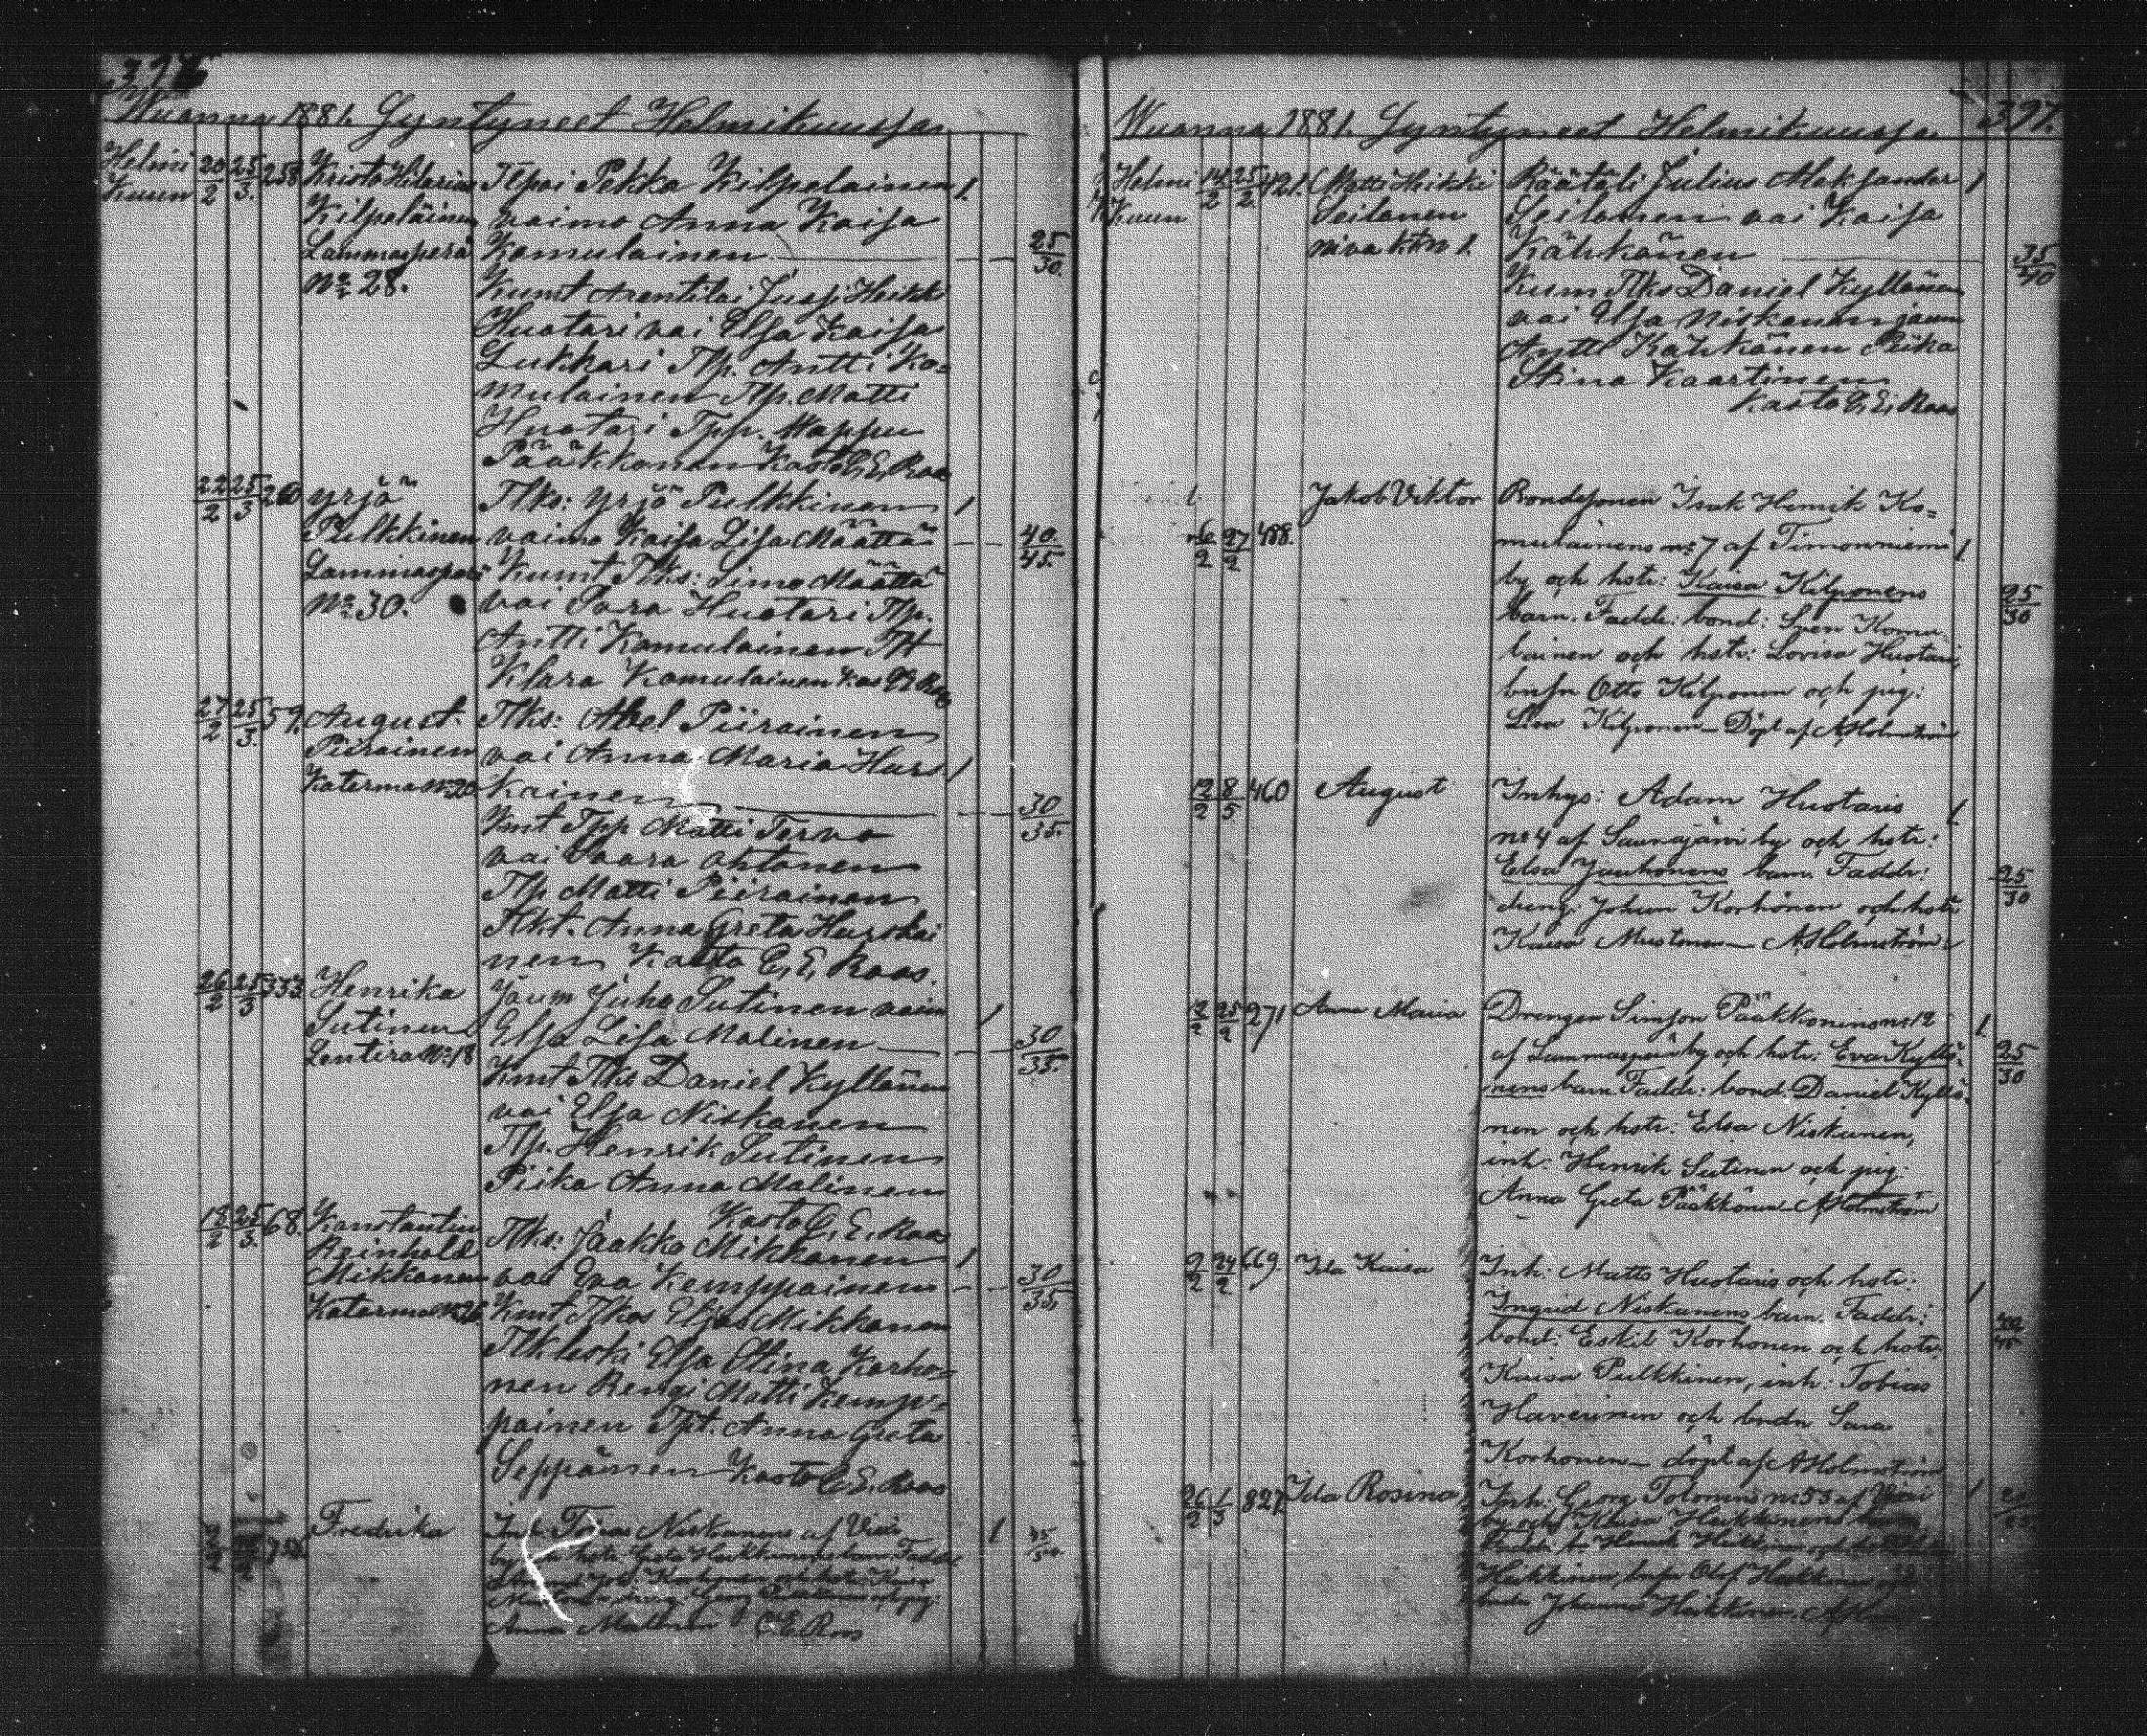 Wuonna 1881. Syntyneet Helmikuussa
Helmi Kuun
20/2 25/3. 258 Kristo Hilarius
Kilpeläinen
Lammasperä
No 28.
Tlpoi Pekka Kilpelainen 1.
vaimo Anna Kaisa
Komulainen 25/30.
Kumt Arentilai Jussi Heikki
Huotari vai Elsa Kaisa
Lukkari Tlp. Antti Ko=
mulainen Tlp. Matti
Huotari Tpp. Wappu
Pääkkönen Kasto C. E. Roos
22/2 25/3 260 Yrjö
Pulkkinen
Lammasperä
No 30.
Tlks: Yrjö Pulkkinen 1
vaimo Kaisa Lisa Määttä 40./45.
Kumt Tlks: Simo Määttä
vai Sara Huotari Tlp.
Antti Komulainen Tlt
Klara Komulainen
27/2 25/3. 59. August
Piirainen
Katerma No 20
Tlks: Abel Piirainen
vai Anna Maria Hurs 1
kainen 30/35.
Kmt Tpp Matti Tervo
vai Saara Ohtonen
Tlp Matti Piirainen
Tlkt. Anna Greta Hurskai
nen Kasto C. E. Roos.
26/2 25/3 333. Henrika
Sutinen
Lentira No 18
Jaum Juho Sutinen vaim 1
Elsa Lisa Malinen 30/35.
Kmt Tlks Daniel Kyllönen
vai Elsa Niskanen
Tlp. Henrik Sutinen
Piika Anna Malinen
Kasto C. E. Roos
18/2 25/3. 68. Konstantin
Reinhold
Mikkonen
Katerma No 26
Tlks: Jaakko Mikkonen 1
vai Eva Kemppainen 30/35,
Kmt Tlkos Eljas Mikkonen
Tlkleski Elsa Stina Korho=
nen Rengi Matti Kemp=
painen Tpt. Anna Greta
Seppänen Kasto C. E. Roos
Fredrika
Inh: Tobias Niskanens af Viiki 1
Anna Malinen C E. Roos
Wuonna 1881. Syntyneet Helmikuussa 397.
Helmi Kuun
14/2 25/2. 421. Matti Heikki
Seilonen
Räätäli Julius Aleksander 1
Seilonen vai Kaisa
Kähkönen 35/40
Kum Tlks Daniel Kyllönen
vai Elsa Niskanen jaum
Antti Kähkönen Piika
Stina Kaartinen
Kasto C. E. Roos
27/2 488. Jakob Viktor
Bondesonen Isak Henrik Ko=
mulainens No 7 af Timoniemi 1
by och hstr: Kaisa Kilponens 25/30
barn. Faddr: bond: Sven Komu
lainen och hstr: Lovisa Huotari,
bnsn Otto Kilponen och pig:
Lisa Kilponen Döpt af A Holmström
12/2 8/5 460 August
Inhys: Adam Huotaris 1
No 4 af Saunajärvi by och hstr:
Elsa Jauhonens barn. Faddr: 25/30
dreng: Johan Korhonen och hstr
Kaisa Mustonen A. Holmström
12/2 25/2 271 Anna Maria
Drengen Simson Pääkkönens No 12 1
af Lammasperä by och hstr: Eva Kyllö= 25/30
nens barn Faddr: bond: Daniel Kyllö=
nen och hstr: Elsa Niskanen,
inh: Henrik Sutinen och pig:
Anna Greta Pääkkönen A Holmström
2/2 24/2 669. Ida Kaisa
Inh: Matts Huotaris och hstr: 1
Ingrid Niskanens barn. Faddr:
bond: Eskil Korhonen och hstr:
Kaisa Pulkkinen, inh: Tobias
Haverinen och bndr Sara
Korhonen döpt af A Holmström
26/2 1/3 827. Ida Rosina
Inh: Georg Tolonens No 53 af 1
by och Kaisa Heikkinens barn
Heikkinen, bnsn Olof Heikkinen och
bndr Johanna Heikkinen